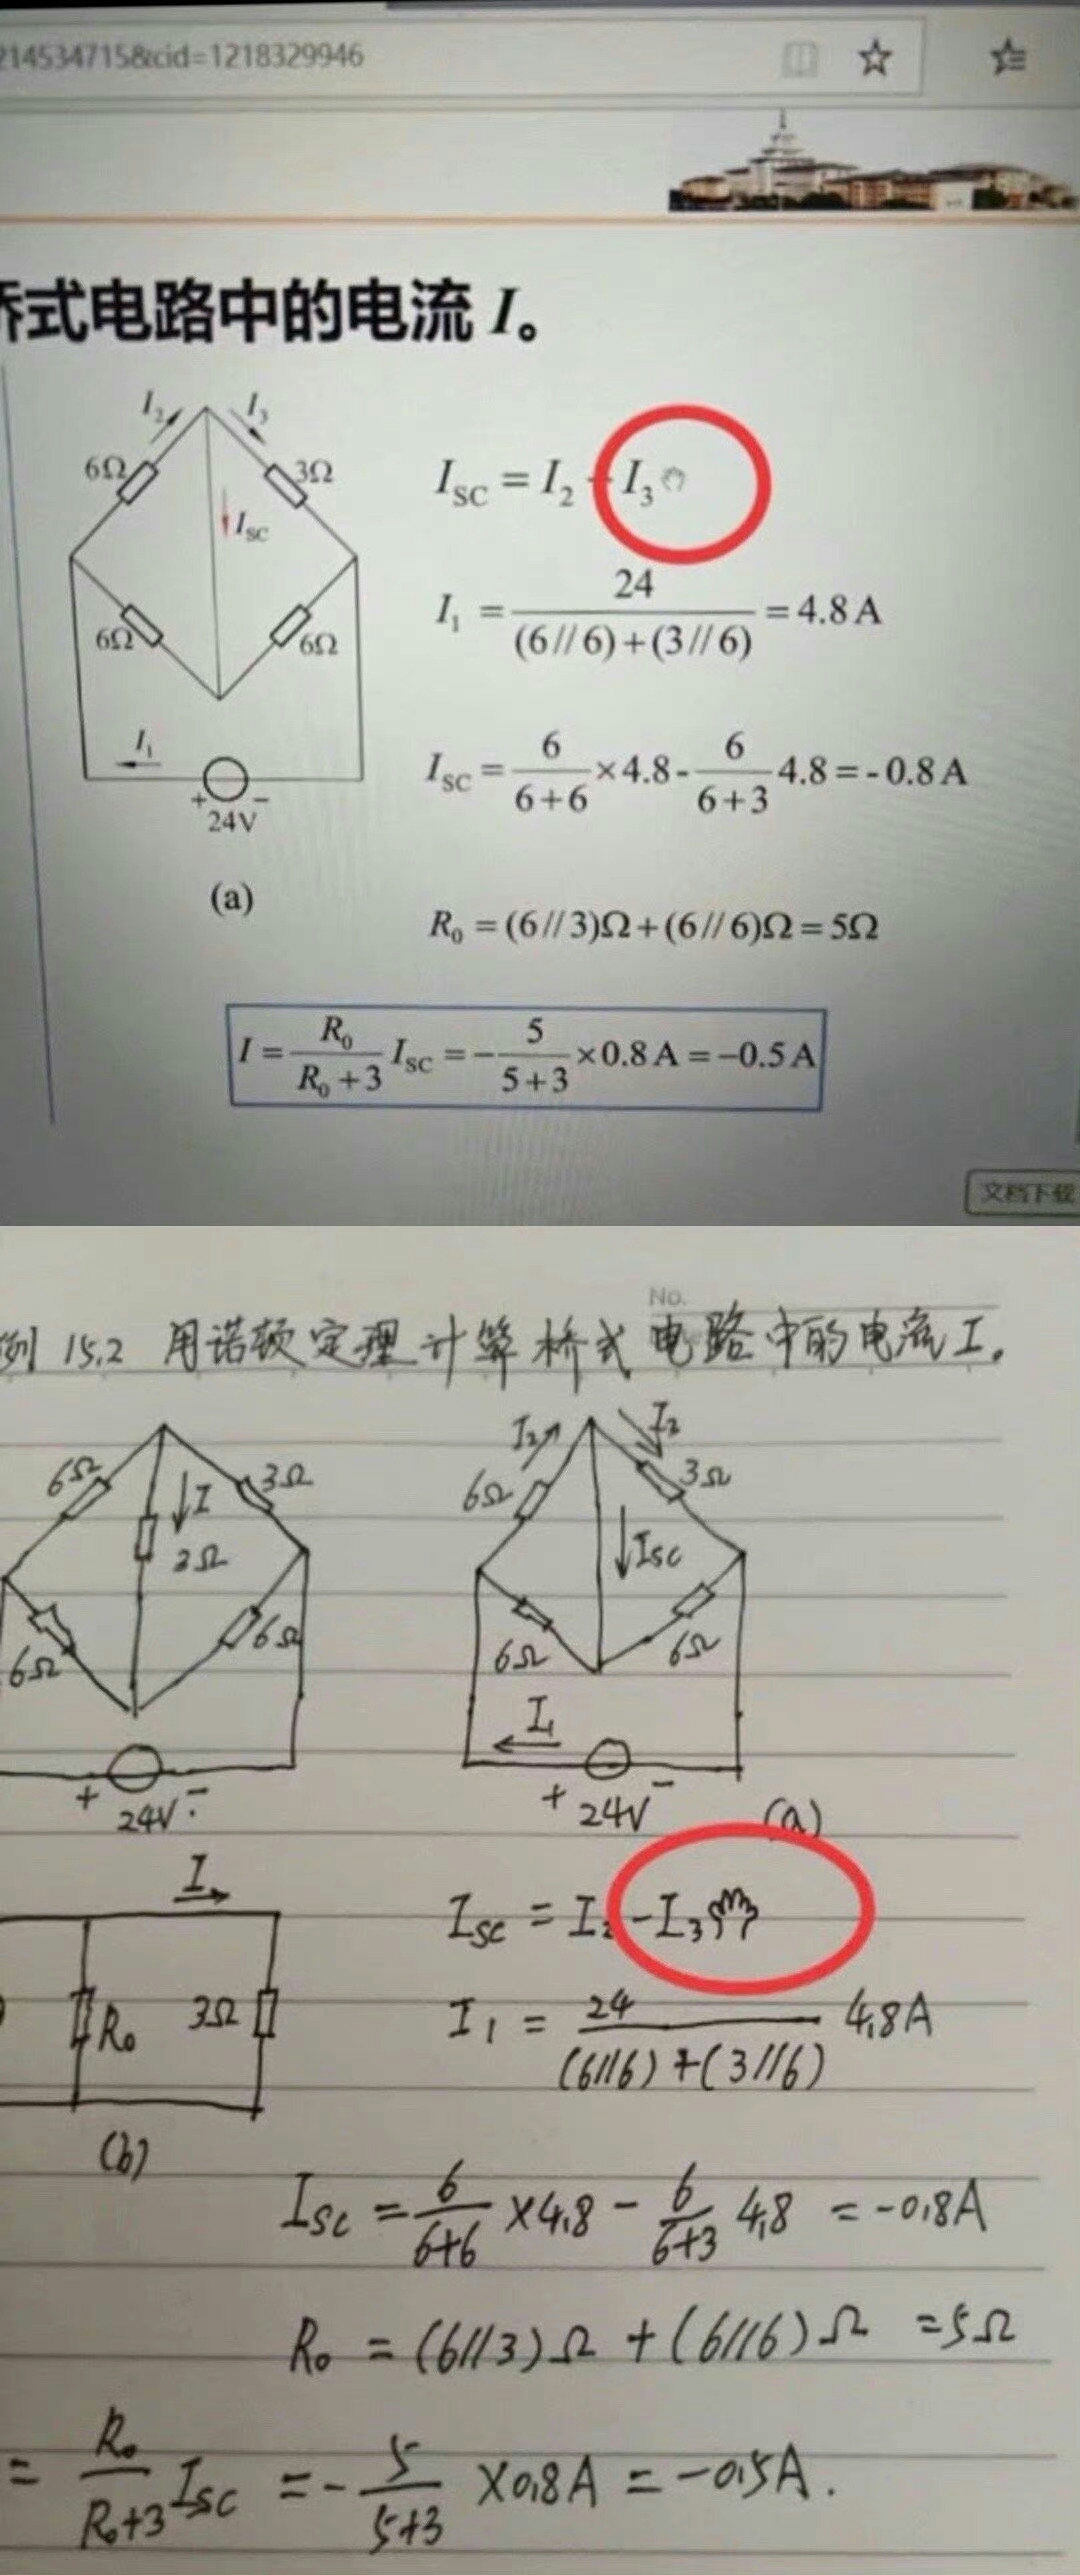 214534715&cid=1218329946
桥式电路中的电流 I。
I₂ I₃
6Ω 3Ω
I_SC
6Ω 6Ω
I₁
+ −
24V
(a)
I_SC = I₂ - I₃
I₁ = 24 / ((6//6)+(3//6)) = 4.8 A
I_SC = 6/(6+6) ×4.8 - 6/(6+3) 4.8 = -0.8 A
R₀ = (6//3)Ω+(6//6)Ω = 5Ω
I = R₀/(R₀+3) I_SC = -5/(5+3) ×0.8 A = -0.5 A
文档下载
No.
例 15.2 用诺顿定理计算桥式电路中的电流 I。
6Ω 3Ω
I
3Ω
6Ω 6Ω
+ −
24V
I₂ I₃
6Ω 3Ω
Isc
6Ω 6Ω
I₁
+ −
24V
(a)
I
R₀ 3Ω
(b)
Isc = I₂ - I₃
I₁ = 24 / ((6//6)+(3//6)) 4.8A
Isc = 6/(6+6) ×4.8 - 6/(6+3) 4.8 = -0.8A
R₀ = (6//3)Ω + (6//6)Ω = 5Ω
= R₀/(R₀+3) Isc = -5/(5+3) ×0.8A = -0.5A.